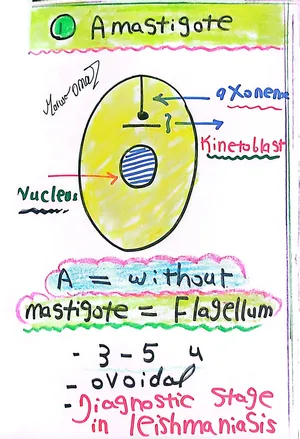 1 Amastigote
Marwa Omar
axoneme
Kinetoblast
Nucleus
A = without
mastigote = Flagellum
- 3-5 u
- ovoidal
- Diagnostic stage
in leishmaniasis